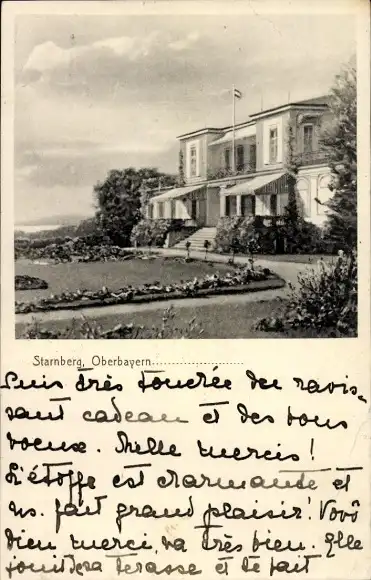 Starnberg, Oberbayern......................
Suis très touchée du ravis-
sant cadeau et des bons
voeux. Mille mercis!
L'étoffe est charmante et
ns. fait grand plaisir! Vovô
bien merci, va très bien. Elle
jouit de la terasse et le fait